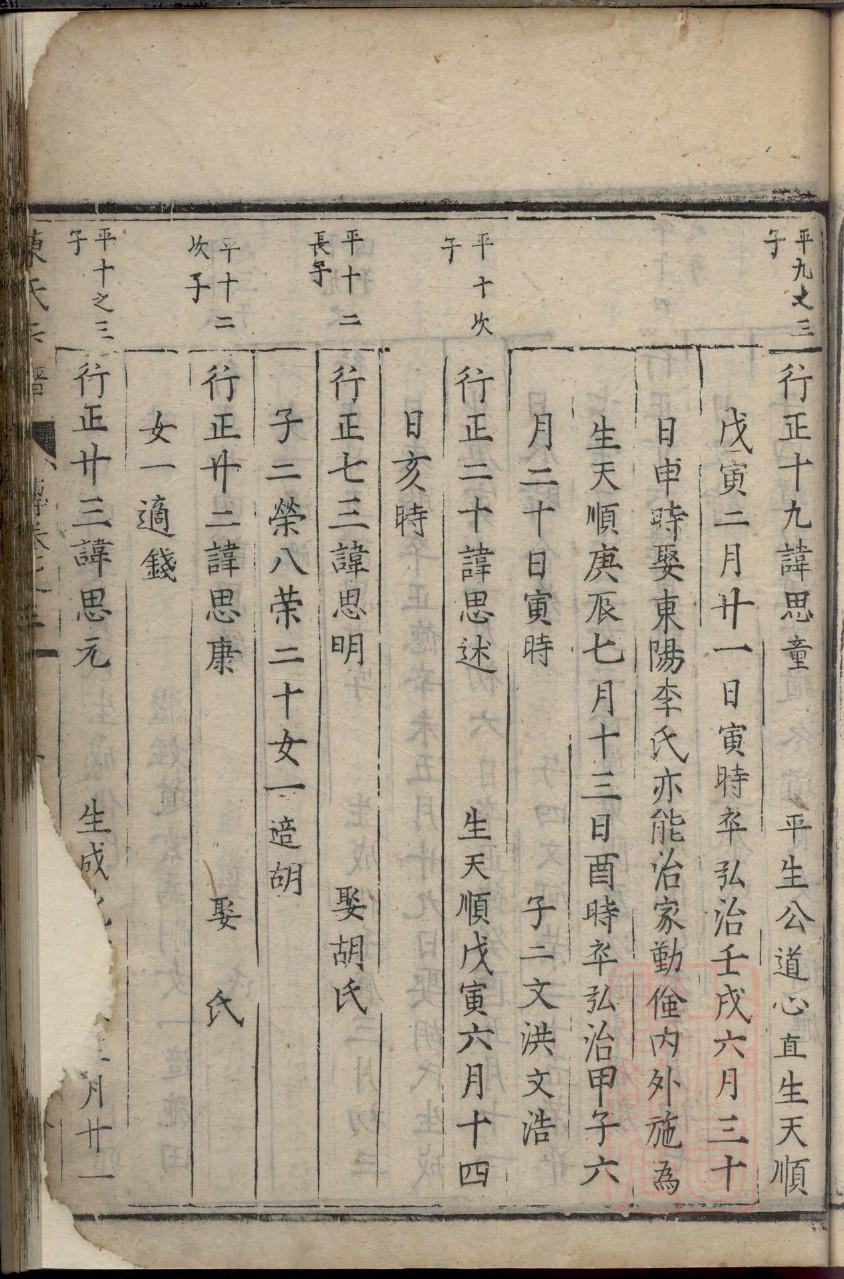 平九之三子
行正十九諱思童 平生公道心直生天順
戊寅二月廿一日寅時卒弘治壬戌六月三十
日申時娶東陽李氏亦能治家勤儉内外施為
生天順庚辰七月十三日酉時卒弘治甲子六
月二十日寅時 子二文洪文浩
平十次子
行正二十諱思述 生天順戊寅六月十四
日亥時
平十二長子
行正七三諱思明 娶胡氏
子二榮八荣二十女一適胡
平十二次子
行正廿二諱思康 娶 氏
女一適錢
平十之三子
行正廿三諱思元 生成 月廿一